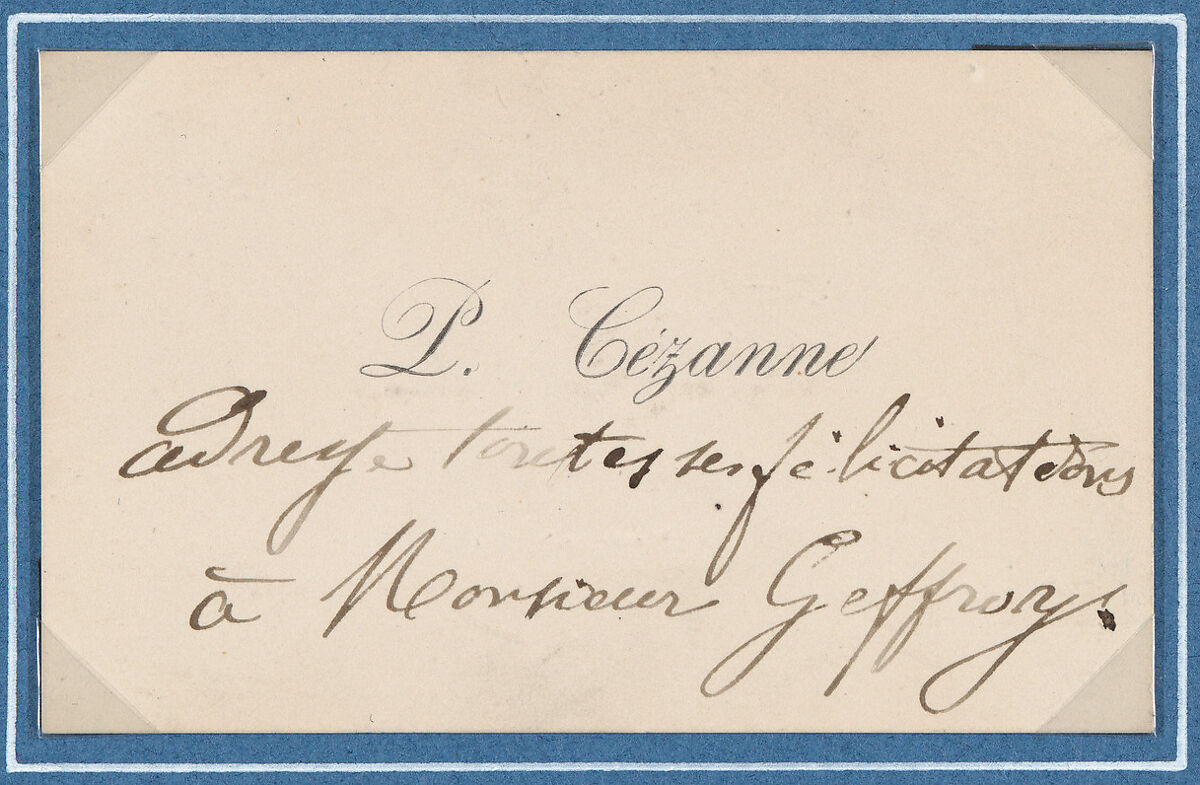 P. Cézanne
adresse toutes ses félicitations
à Monsieur Geffroy.